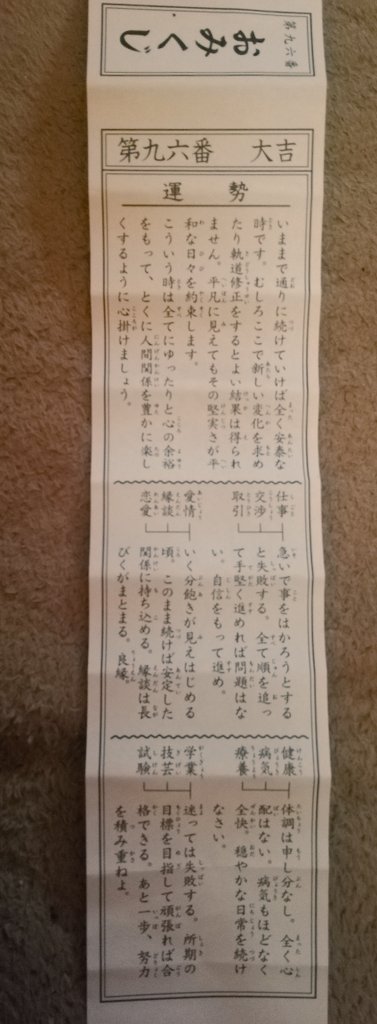 第九六番
おみくじ
第九六番　大吉
運勢
いままで通りに続けていけば全く安泰な
時です。むしろここで新しい変化を求め
たり軌道修正をするとよい結果は得られ
ません。平凡に見えてもその堅実さが平
和な日々を約束します。
こういう時は全てにゆったりと心の余裕
をもって、とくに人間関係を豊かに楽し
くするように心掛けましょう。
仕事
交渉
取引
急いで事をはかろうとする
と失敗する。全て順を追っ
て手堅く進めれば問題はな
い。自信をもって進め。
愛情
縁談
恋愛
いく分飽きが見えはじめる
頃。このまま続けば安定した
関係に持ち込める。縁談は長
びくがまとまる。良縁。
健康
病気
療養
体調は申し分なし。全く心
配はない。病気もほどなく
全快。穏やかな日常を続け
なさい。
学業
技芸
試験
迷っては失敗する。所期の
目標を目指して頑張れば合
格できる。あと一歩、努力
を積み重ねよ。